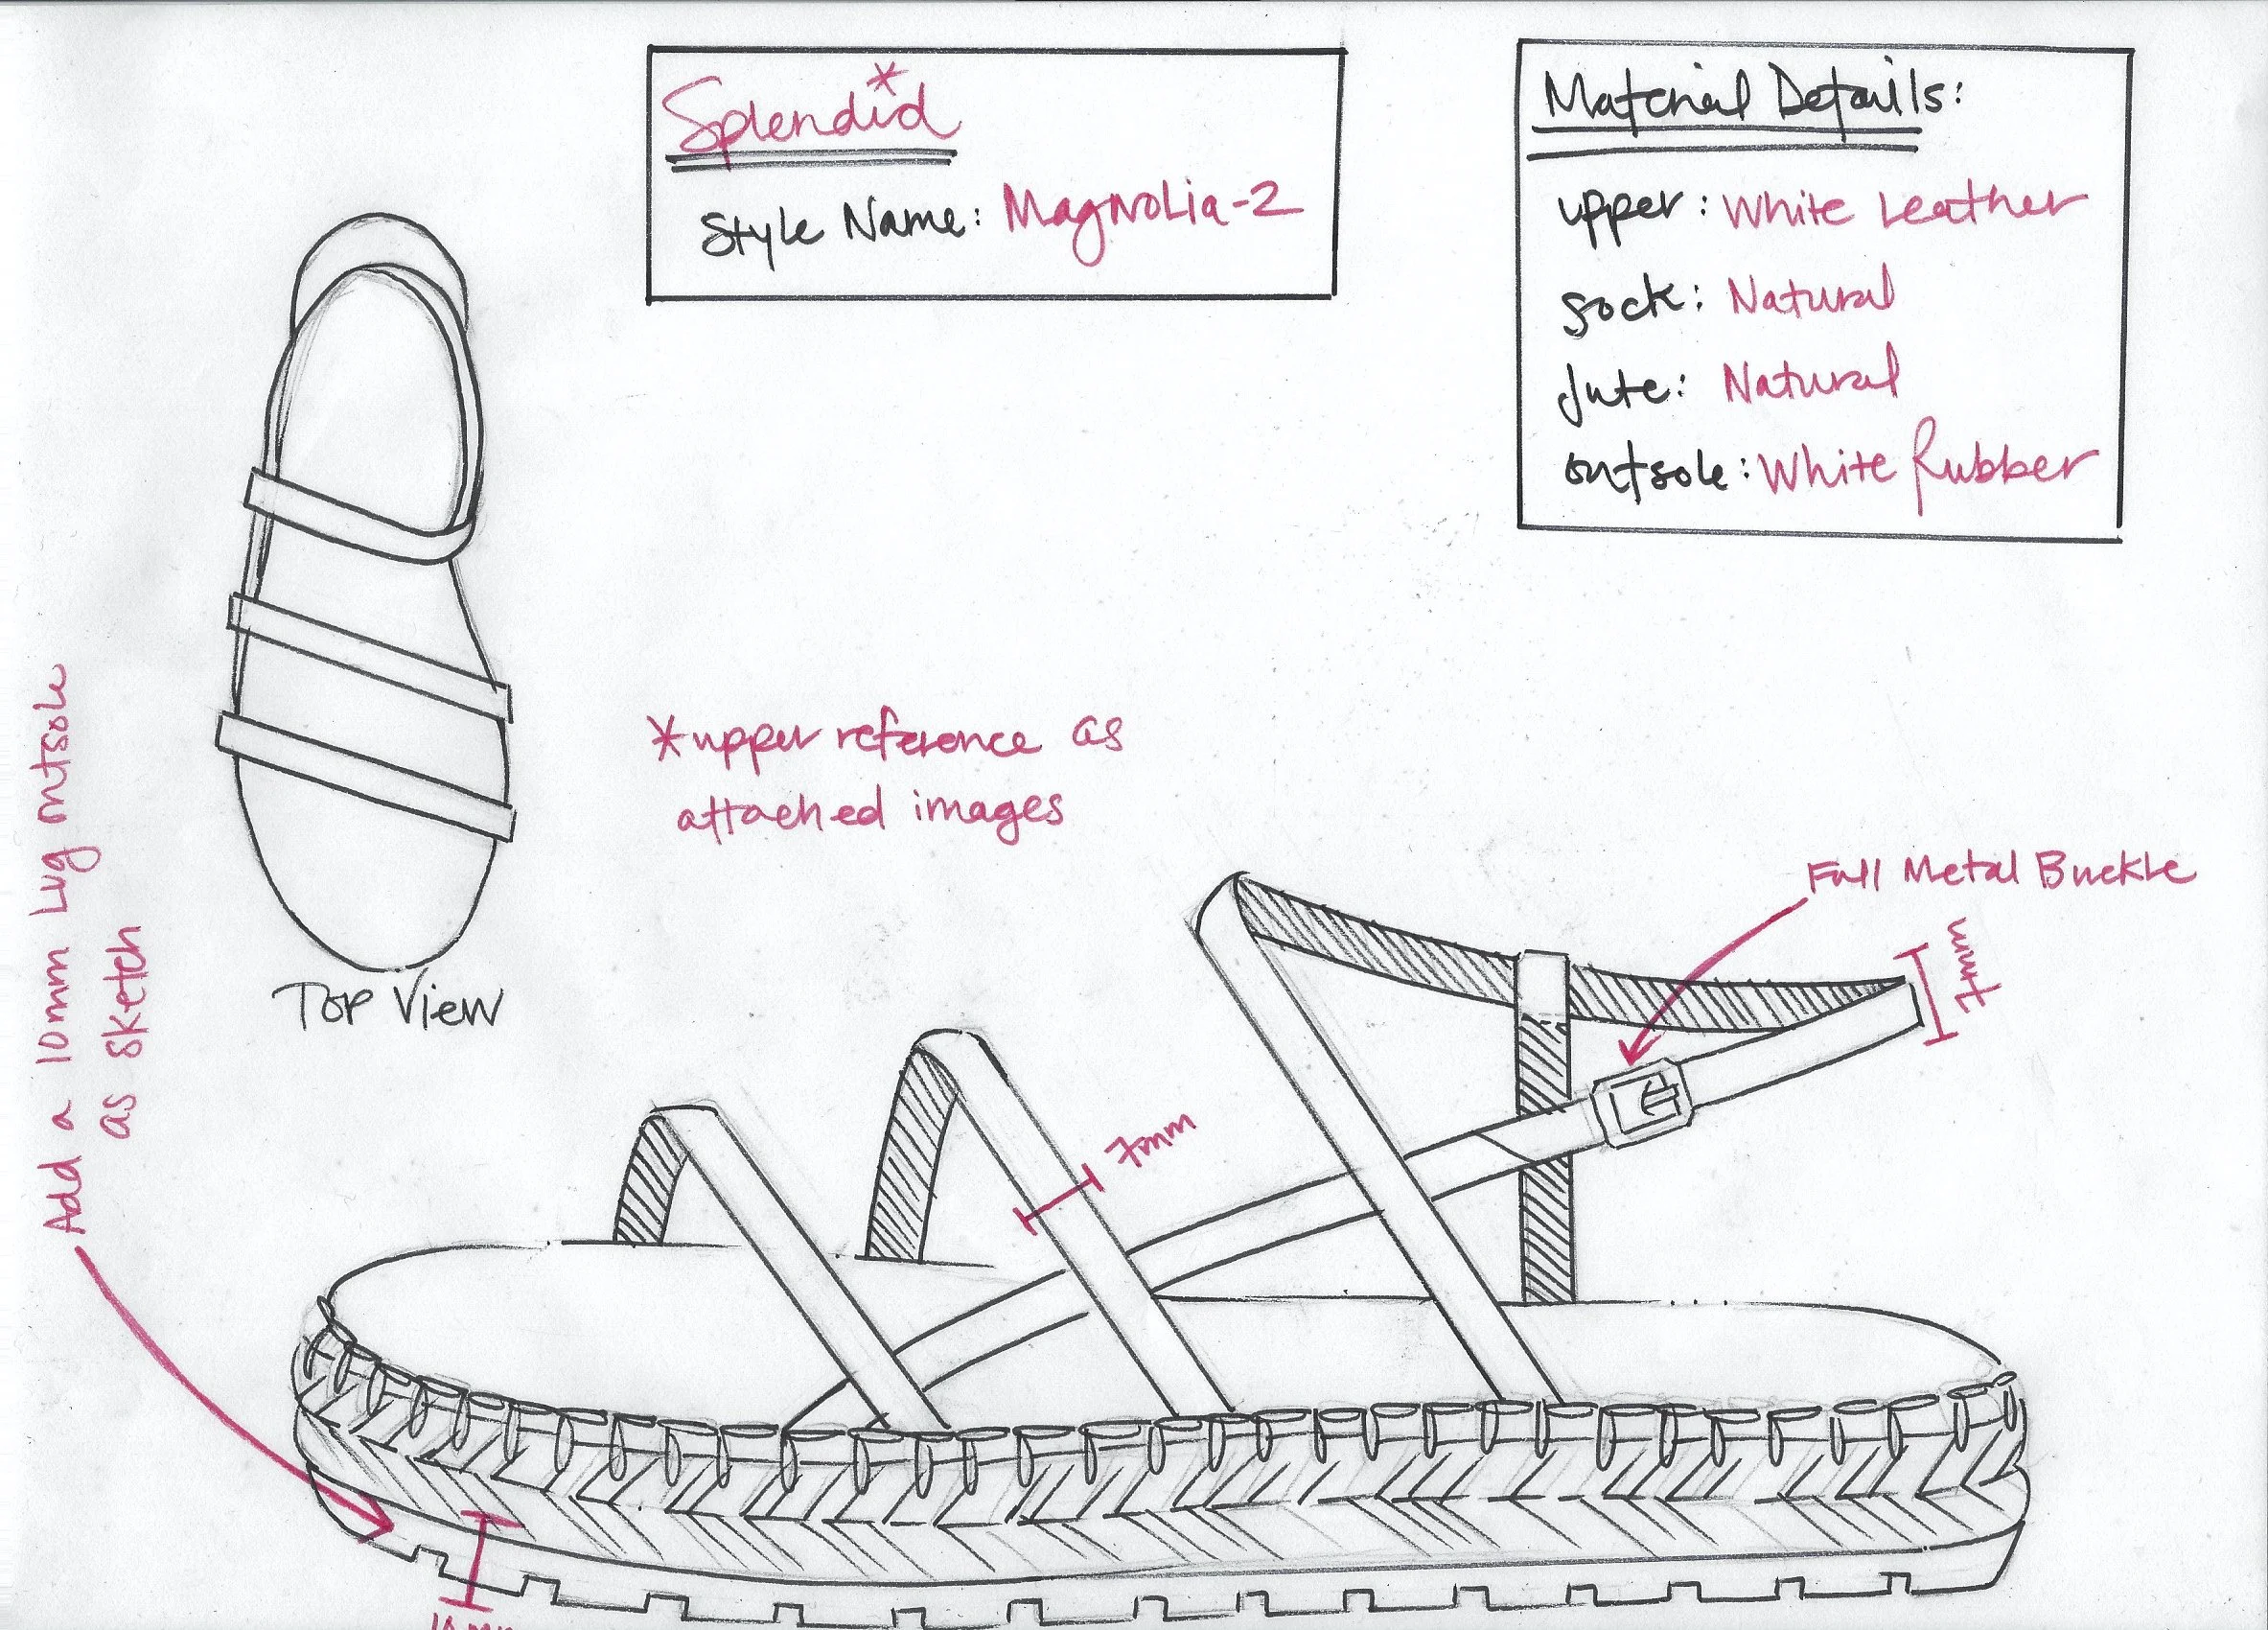 Splendid*
Style Name: Magnolia-2
Material Details:
upper: White Leather
sock: Natural
Jute: Natural
outsole: White Rubber
Top View
*upper reference as
attached images
Full Metal Buckle
7mm
7mm
Add a 10mm Lug outsole
as sketch
10mm